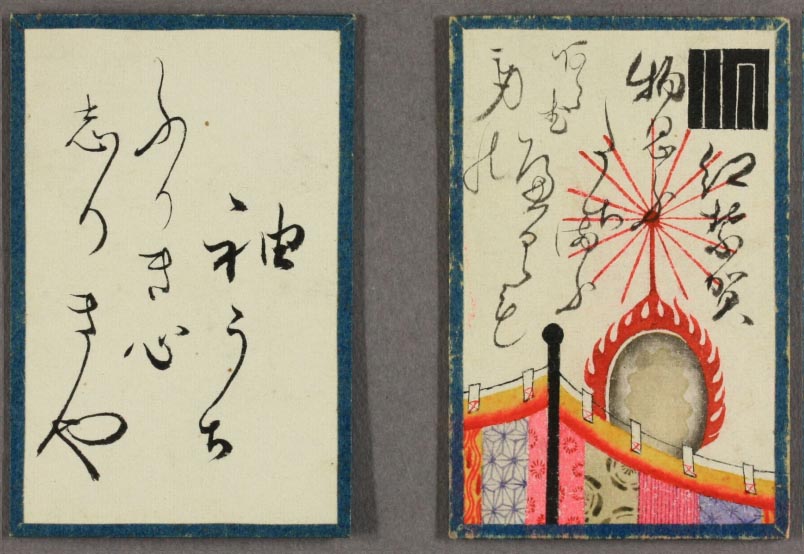 紅葉賀
物思ふ
にたちまふ
へくも
あらぬ
身の
袖うち
ふりき心
志りきや